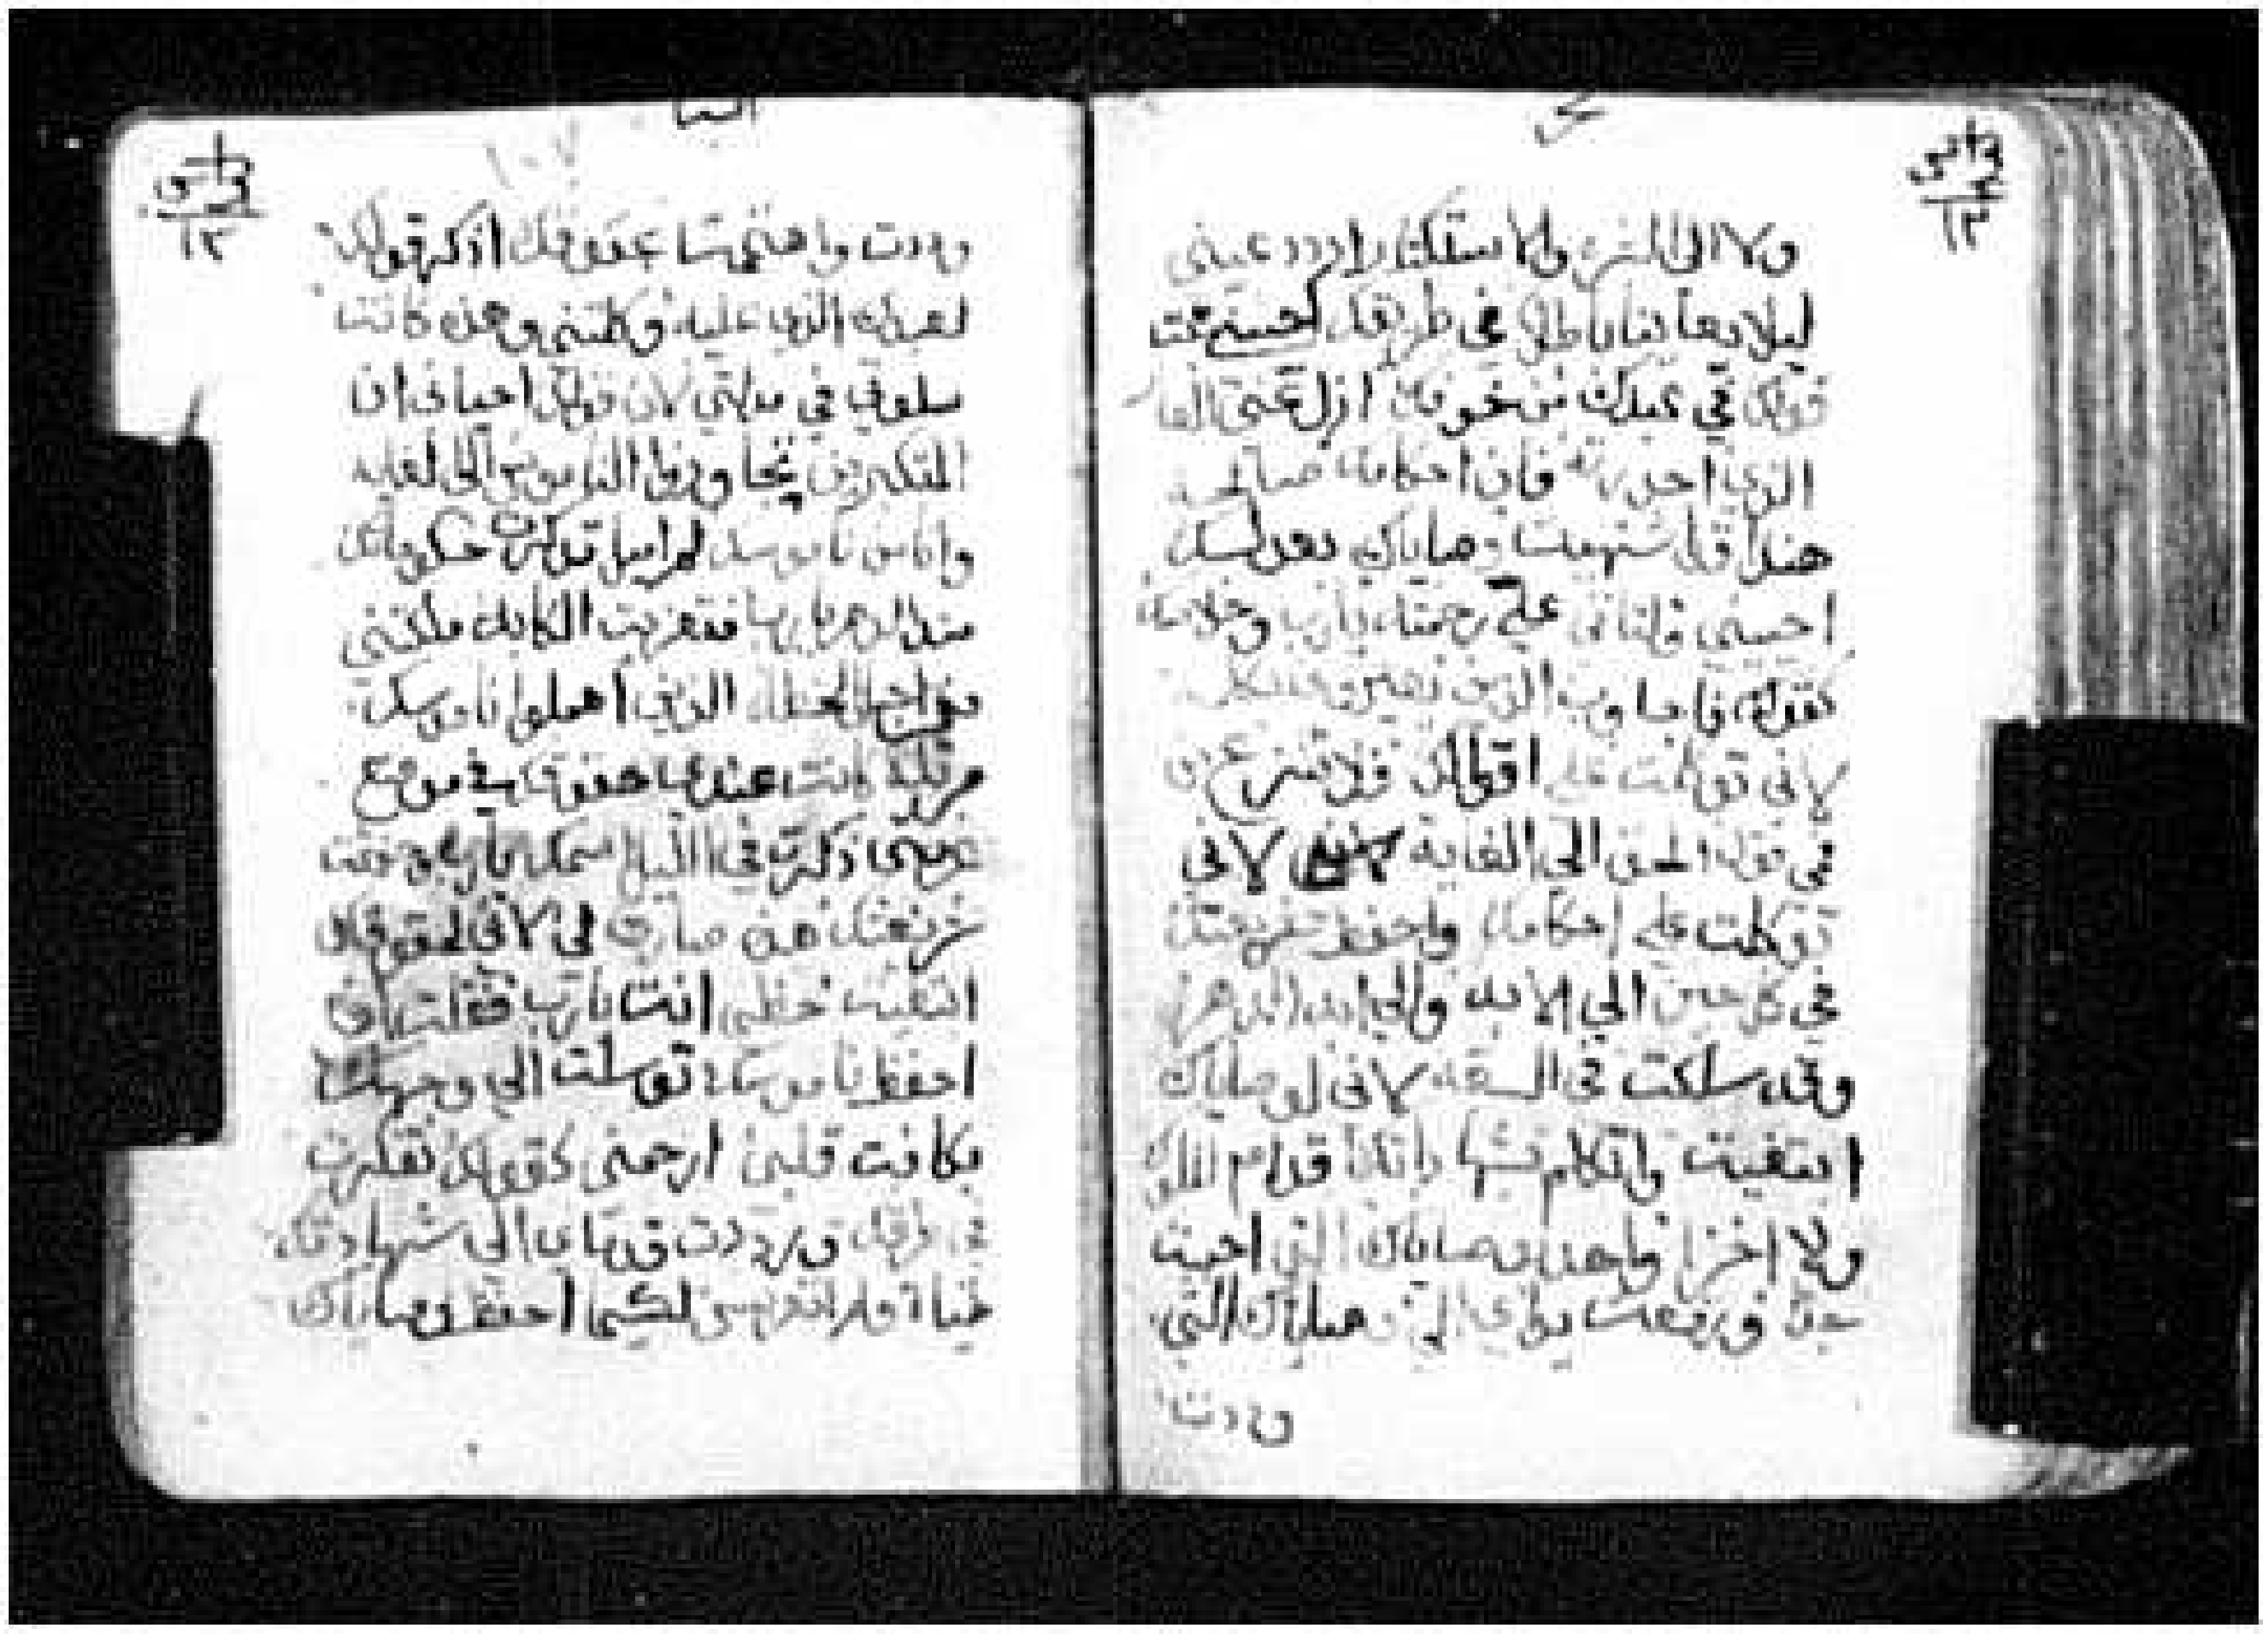 ولا الى الشره والاستكثار اردد عيني
ليلا يعاينا باطلا في طريقك احييني تبت
قولك في عبدك من خوفك ازل عني العار
الذي احذرته فان احكامك صالحه
هنذا قد اشتهيت وصاياك بعدلك
احييني ولتاتي علي رحمتك يارب وخلاصك
كقولك فاجاوب الذين يعيروني بالكلام
لاني توكلت على اقوالك فلا تنزع من
في قول الحق الى الغايه لاني
توكلت على احكامك واحفظ شريعتك
في كل حين الي الابد والي ابد الدهر
وقد سلكت في السعه لاني لوصاياك
ابتغيت واتكلم بشهاداتك قدام الملوك
ولا اخزا واهذ بوصاياك التي احببت
جدا ورفعت يداي الى وصاياك التي
وددت
وددت واهتميت بحقوقك اذكر قولك
لعبدك الذي عليه وكلتني وهذه كانت
سلوتي في مذلتي لان قولك احياني ان
المتكبرين تجاوزوا الناموس الى الغايه
وانا من ناموسك لم امل تذكرت حكوماتك
منذ الدهر يارب فتعزيت الكابه ملكتني
من اجل الخطاه الذين اهملوا ناموسك
مرتله كانت عندي حقوقك في موضع
غربتي ذكرت في الليل اسمك يارب وحفظت
شريعتك هذه صارت لي لاني لحقوقك
ابتغيت حظي انت يارب فقلت ان
احفظ ناموسك توسلت الي وجهك
بكافت قلبي ارحمني كقولك تفكرت
في طرقك ورددت قدماي الى شهادتك
تهيات ولم افزع لكيما احفظ وصاياك